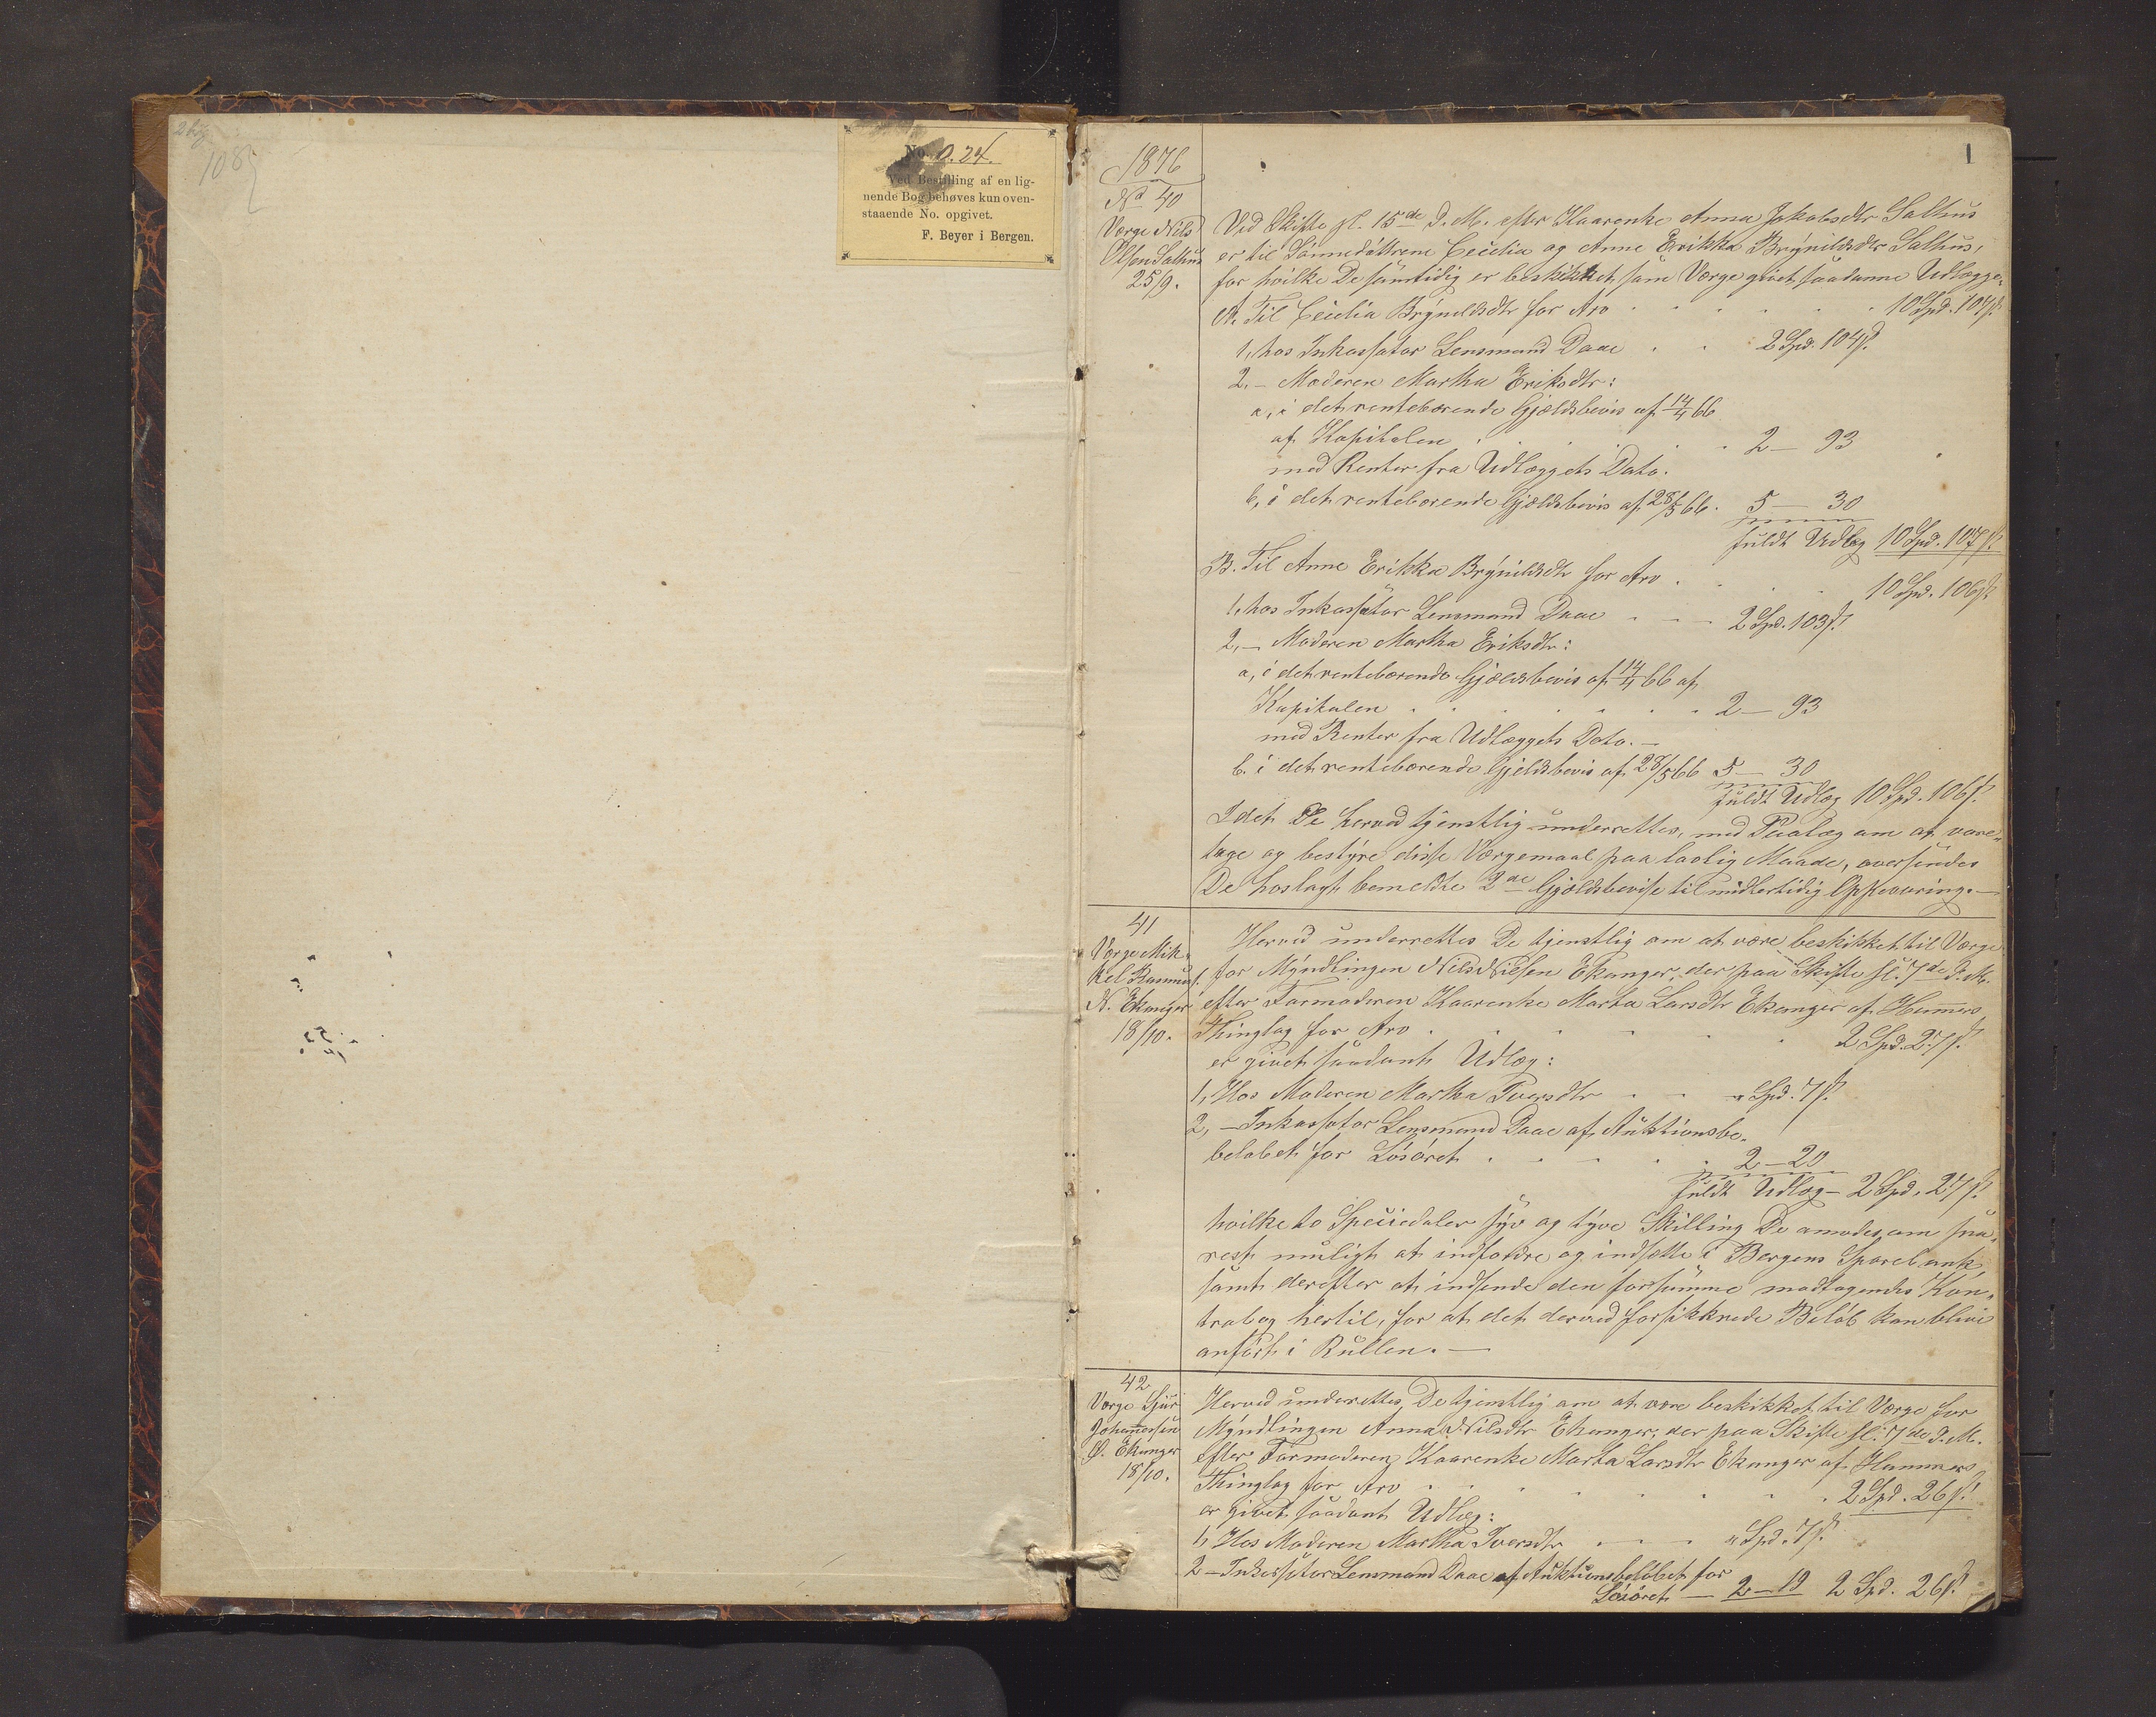 108
No. O. 24.
Ved Bestilling af en lig-
nende Bog behøves kun oven-
staaende No. opgivet.
F. Beyer i Bergen.
1
1876
No 40
Værge Nils
Olsen Salhus
25/9.
Ved Skifte sl. 15de d. M. efter Kaarenke Anna Jakobsdtr Salhus
er til Sønnedøttrene Cecilia og Anne Erikka Brynildsdtr Salhus,
for hvilke De samtidig er beskikket som Værge givet saadanne Udlægge:
A. Til Cecilia Brynildsdtr for Arv . . . . . 10 Spd. 107 s.
1, hos Inkassator Lensmand Daae . . 2 Spd. 104 s.
2, – Moderen Martha Eriksdtr:
a, i det rentebærende Gjældsbevis af 14/4 66
af Kapitalen . . . . . 2 – 93
med Renter fra Udlæggets Dato.
b, i det rentebærende Gjældsbevis af 28/5 66. 5 – 30
fuldt Udlæg 10 Spd. 107 s.
B. Til Anne Erikka Brynildsdtr for Arv . . . 10 Spd. 106 s.
1, hos Inkassator Lensmand Daae . . . 2 Spd. 103 s.
2, – Moderen Martha Eriksdtr:
a, i det rentebærende Gjældsbevis af 14/4 66 af
Kapitalen . . . . . . . 2 – 93
med Renter fra Udlæggets Dato. –
b. i det rentebærende Gjeldsbevis af 28/5 66 5 – 30
fuldt Udlæg 10 Spd. 106 s.
Idet De herved tjenstlig underrettes, med Paalæg om at vare-
tage og bestyre disse Værgemaal paa lovlig Maade, oversendes
De hoslagt bemeldte 2de Gjældsbevise til midlertidig Opbevaring. –
41
Værge Mik-
kel Rasmuss.
N. Ekanger
18/10.
Herved underrettes De tjenstlig om at være beskikket til Værge
for Myndlingen Nils Nilsen Ekanger, der paa Skifte sl. 7de d. M.
efter Farmoderen Kaarenke Marta Larsdtr Ekanger af Hammers
Thinglag for Arv . . . . . . 2 Spd. 27 s.
er givet saadant Udlæg:
1, Hos Moderen Martha Iversdtr . . " Spd. 7 s.
2, – Inkassator Lensmand Daae af Auktionsbe-
beløbet for Løsøret . . . . . 2 – 20
fuldt Udlæg – 2 Spd. 27 s.
hvilke to Speciedaler syv og tyve Skilling De anmodes om sna-
rest muligt at indfordre og indsætte i Bergens Sparebank
samt derefter at indsende den for samme modtagendes Kon-
trabog hertil, for at det derved forsikkrede Beløb kan blive
anført i Rullen. –
42
Værge Sjur
Johannessen
Ø. Ekanger
18/10.
Herved underrettes De tjenstlig om at være beskikket til Værge for
Myndlingen Anna Nilsdtr Ekanger, der paa Skifte sl. 7de d. M.
efter Farmoderen Kaarenke Marta Larsdtr Ekanger af Hammers
Thinglag for Arv . . . . . . . . 2 Spd. 26 s.
er givet saadant Udlæg:
1, Hos Moderen Martha Iversdtr . . . " Spd. 7 s.
2 – Inkassator Lensmand Daae af Auktionsbeløbet for
Løsøret – 2 – 19 2 Spd. 26 s.